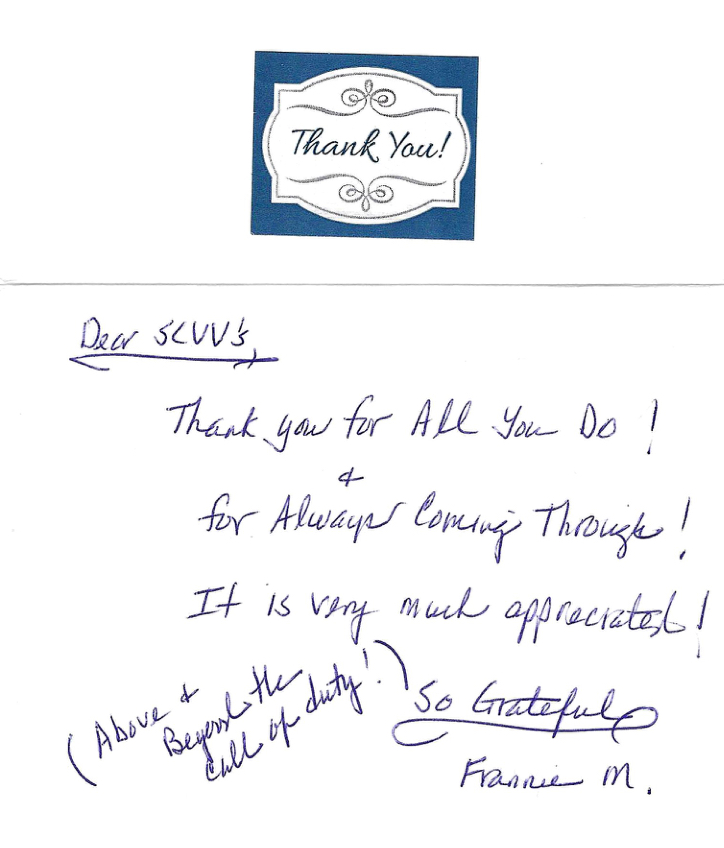 Thank You!
Dear SCVV's,
Thank you for All You Do!
&
for Always Coming Through!
It is very much appreciated!
(Above &
Beyond the
call of duty!)
So Grateful
Frannie M.